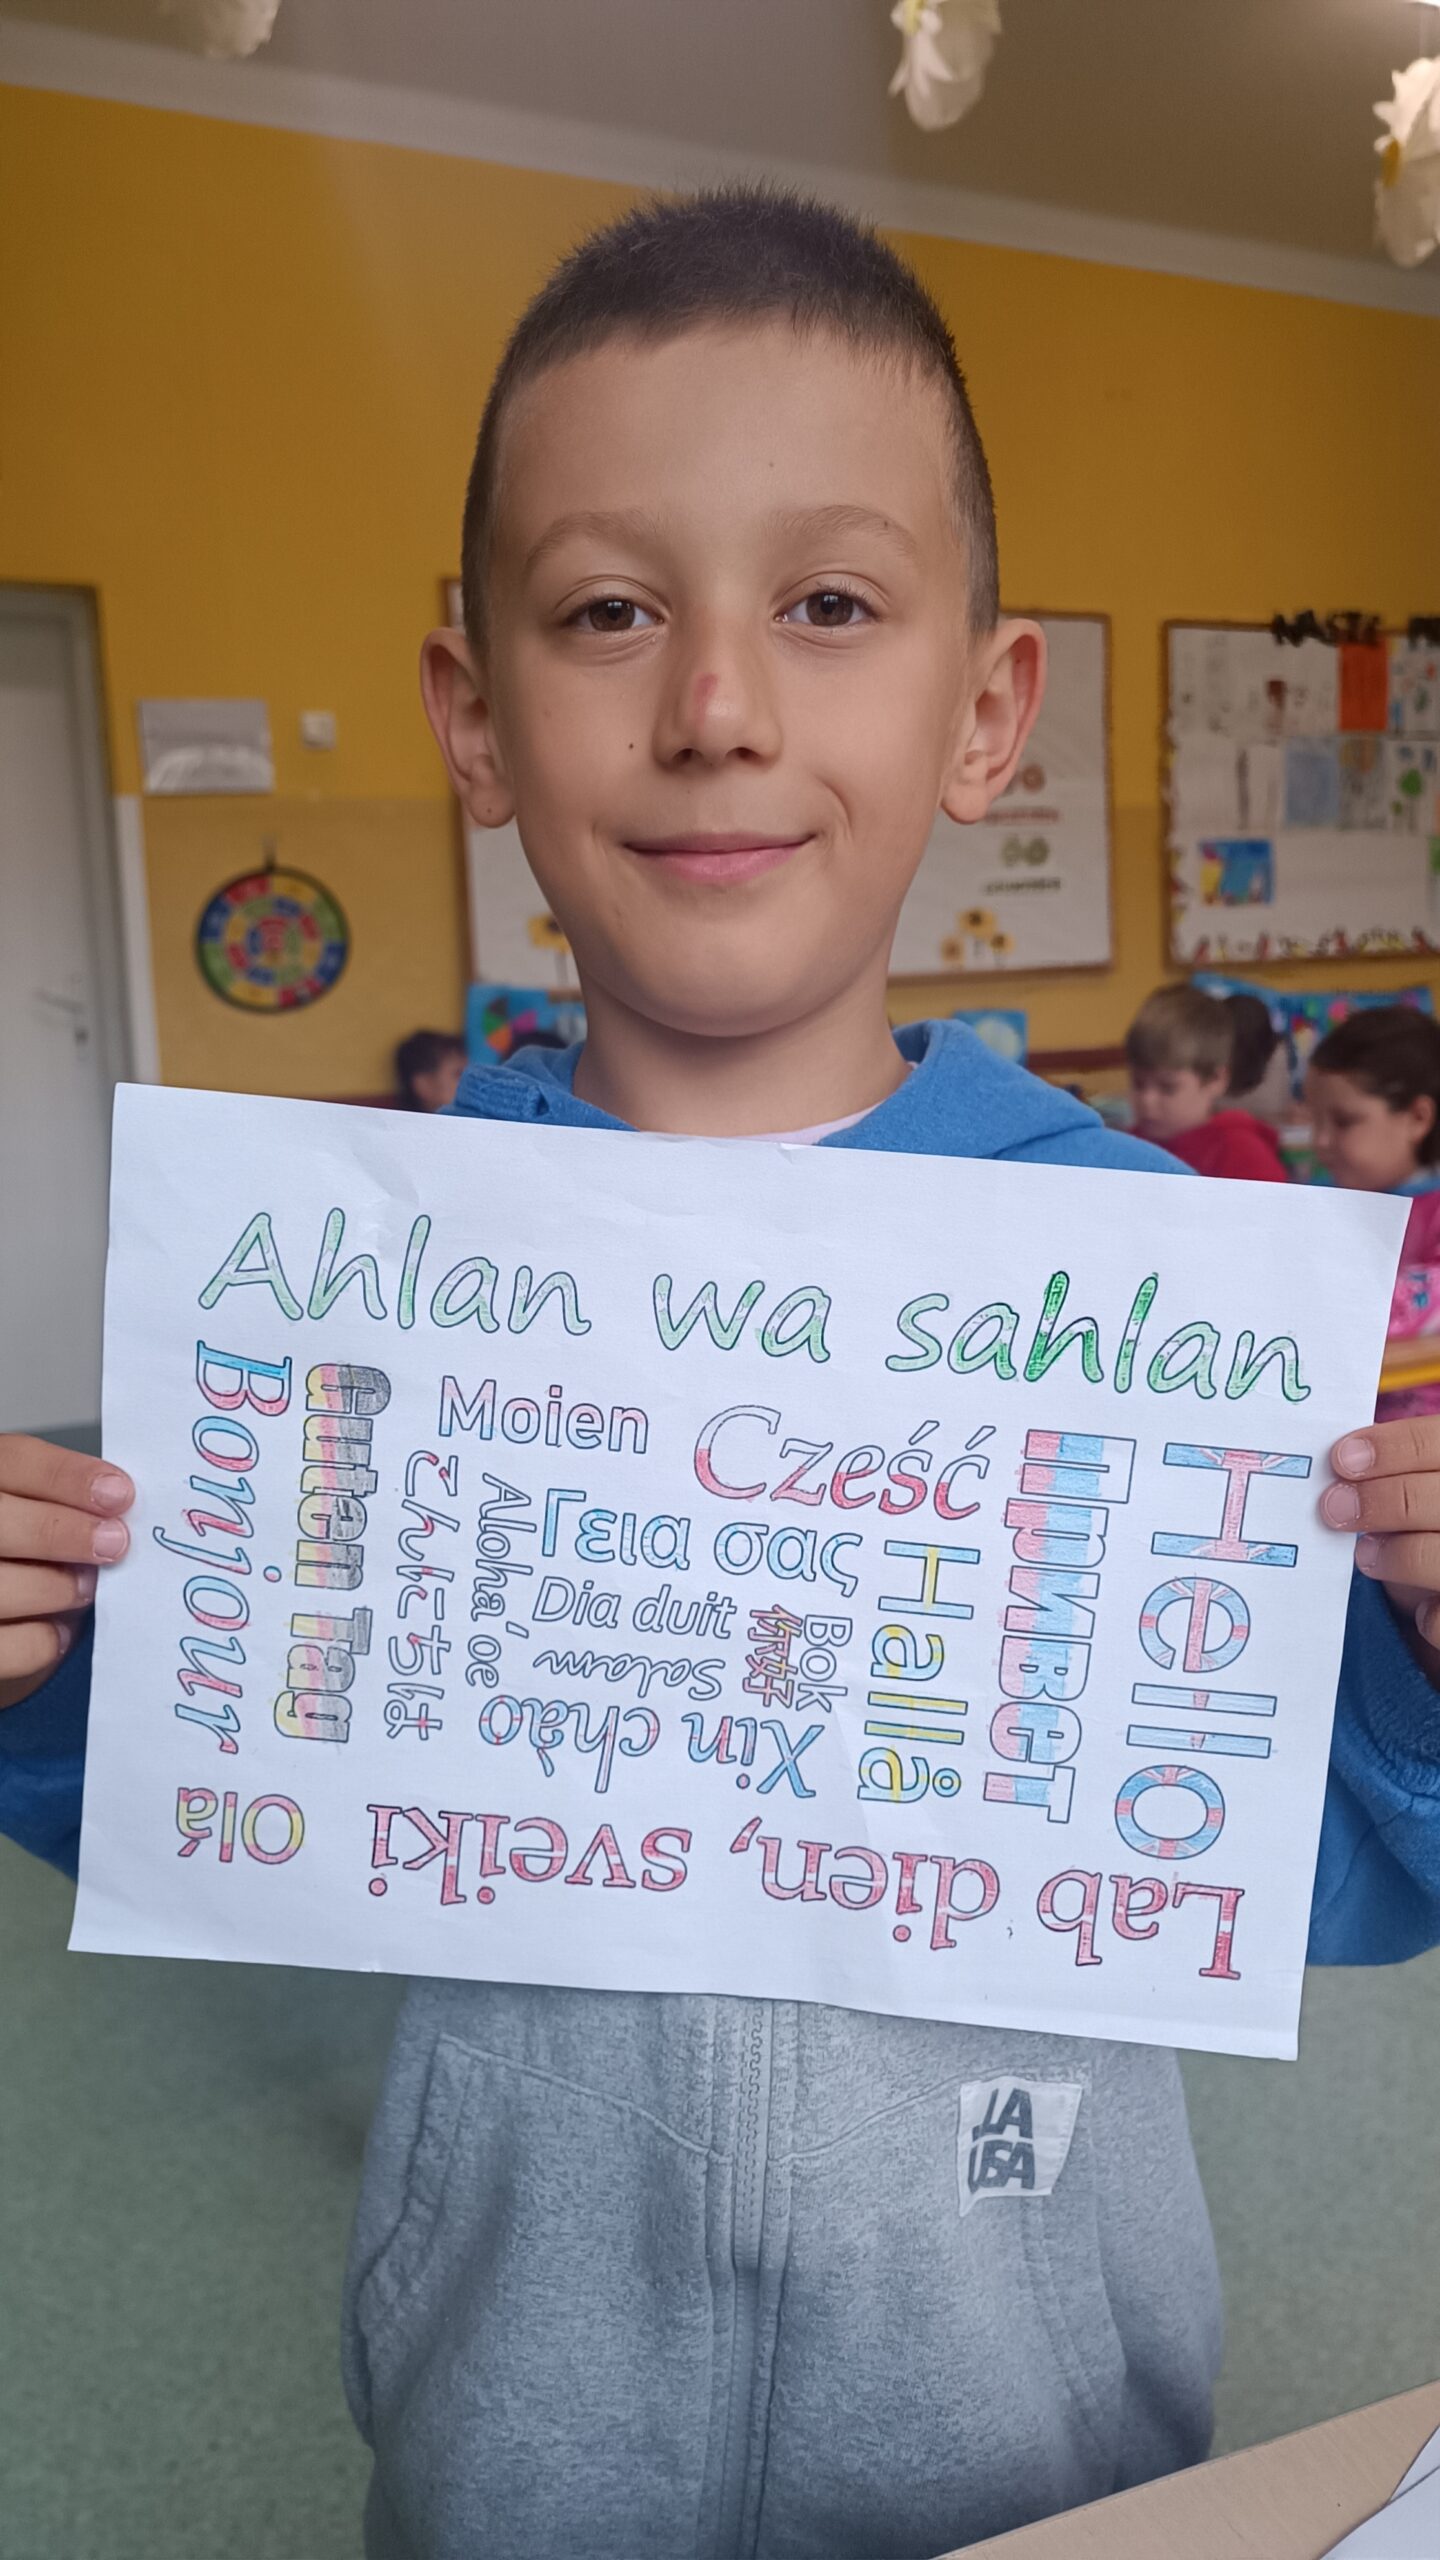 NASZE
Ahlan wa sahlan
Bonjour
Guten Tag
Moien
Cześć
Привет
Hello
こんにちは
Aloha 'oe
Γεια σας
Hallå
Dia duit
你好
Bok
Salam
Xin chào
Olá
Lab dien, sveiki
LA
USA